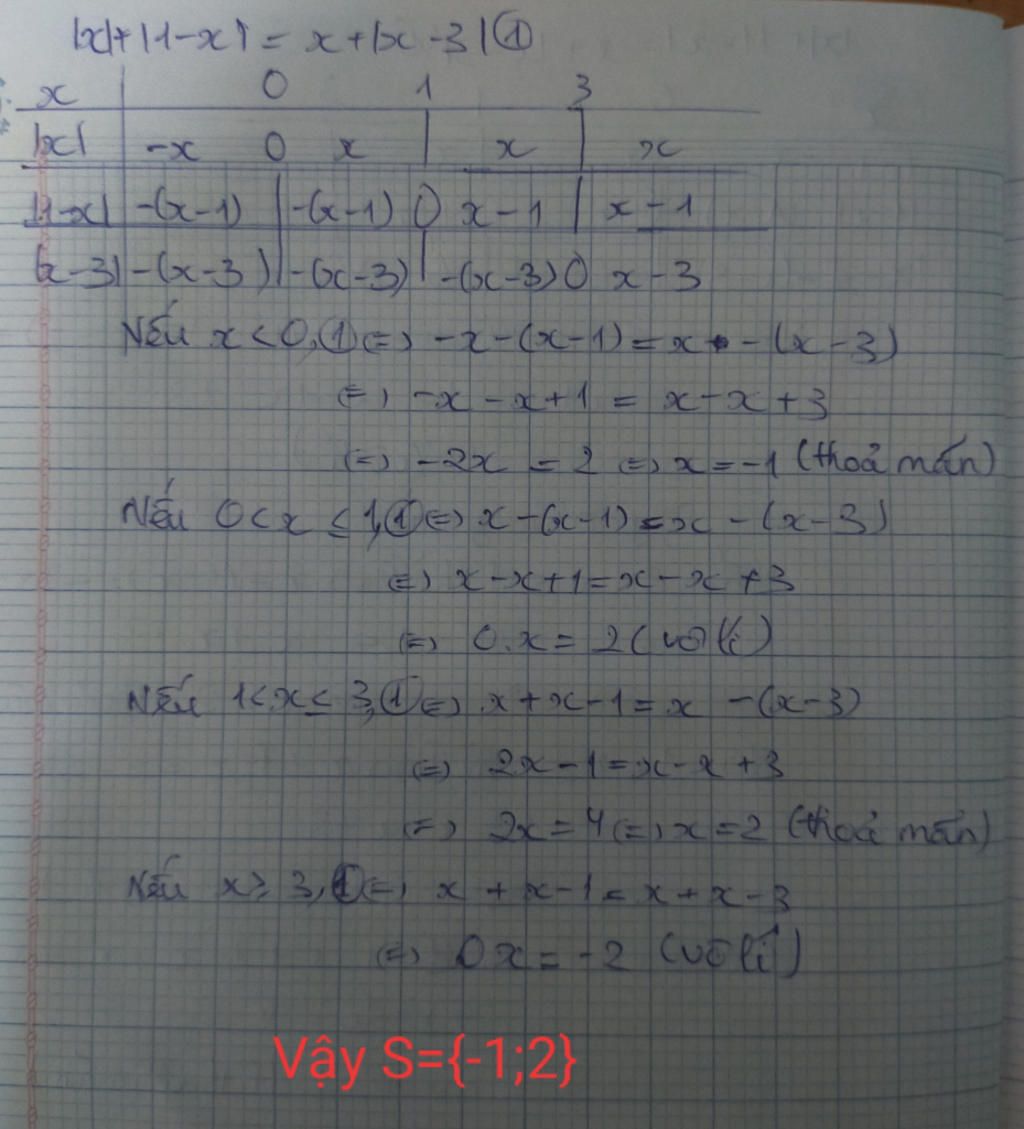 |x|+|1-x| = x+|x-3| ①
x 0 1 3
|x| -x 0 x | x | x
|1-x| -(x-1) | -(x-1) 0 x-1 | x-1
|x-3| -(x-3) | -(x-3) | -(x-3) 0 x-3
Nếu x<0, ① <=> -x-(x-1)=x-(x-3)
<=> -x-x+1 = x-x+3
<=> -2x = 2 <=> x=-1 (thoả mãn)
Nếu 0<x≤1, ① <=> x-(x-1)=x-(x-3)
<=> x-x+1=x-x+3
<=> 0.x=2 (vô lí)
Nếu 1<x≤3, ① <=> x+x-1=x-(x-3)
<=> 2x-1=x-x+3
<=> 2x=4 <=> x=2 (thoả mãn)
Nếu x≥3, ① <=> x+x-1=x+x-3
<=> 0x=-2 (vô lí)
Vậy S={-1;2}